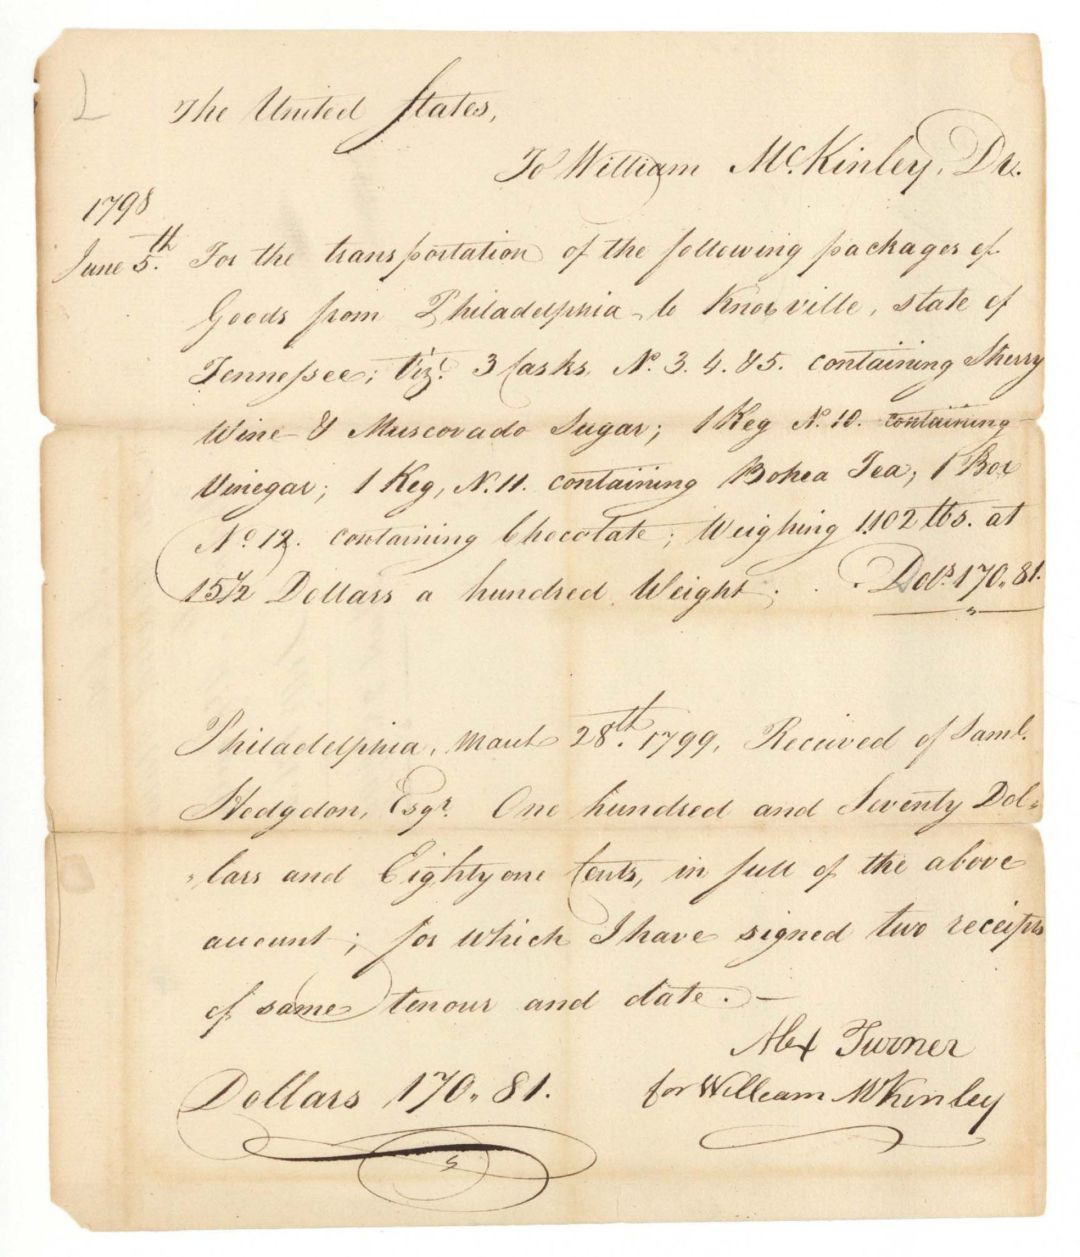 The United States,
To William McKinley, Dr.
1798
June 5th. For the transportation of the following packages of
Goods from Philadelphia to Knoxville, state of
Tennessee; Vizt. 3 Casks No. 3. 4. & 5. containing Sherry
Wine & Muscovado Sugar; 1 Keg No. 10. containing
Vinegar; 1 Keg, No. 11. containing Bohea Tea; 1 Box
No. 12. containing Chocolate; Weighing 1102 lbs. at
15 1/2 Dollars a hundred Weight . . . Dols. 170.81.
Philadelphia, March 28th. 1799, Received of Saml.
Hodgdon, Esqr. One hundred and Seventy Dol-
-lars and Eighty one Cents, in full of the above
account; for which I have signed two receipts
of same tenour and date. —
Alex Turner
for William McKinley
Dollars 170.81.